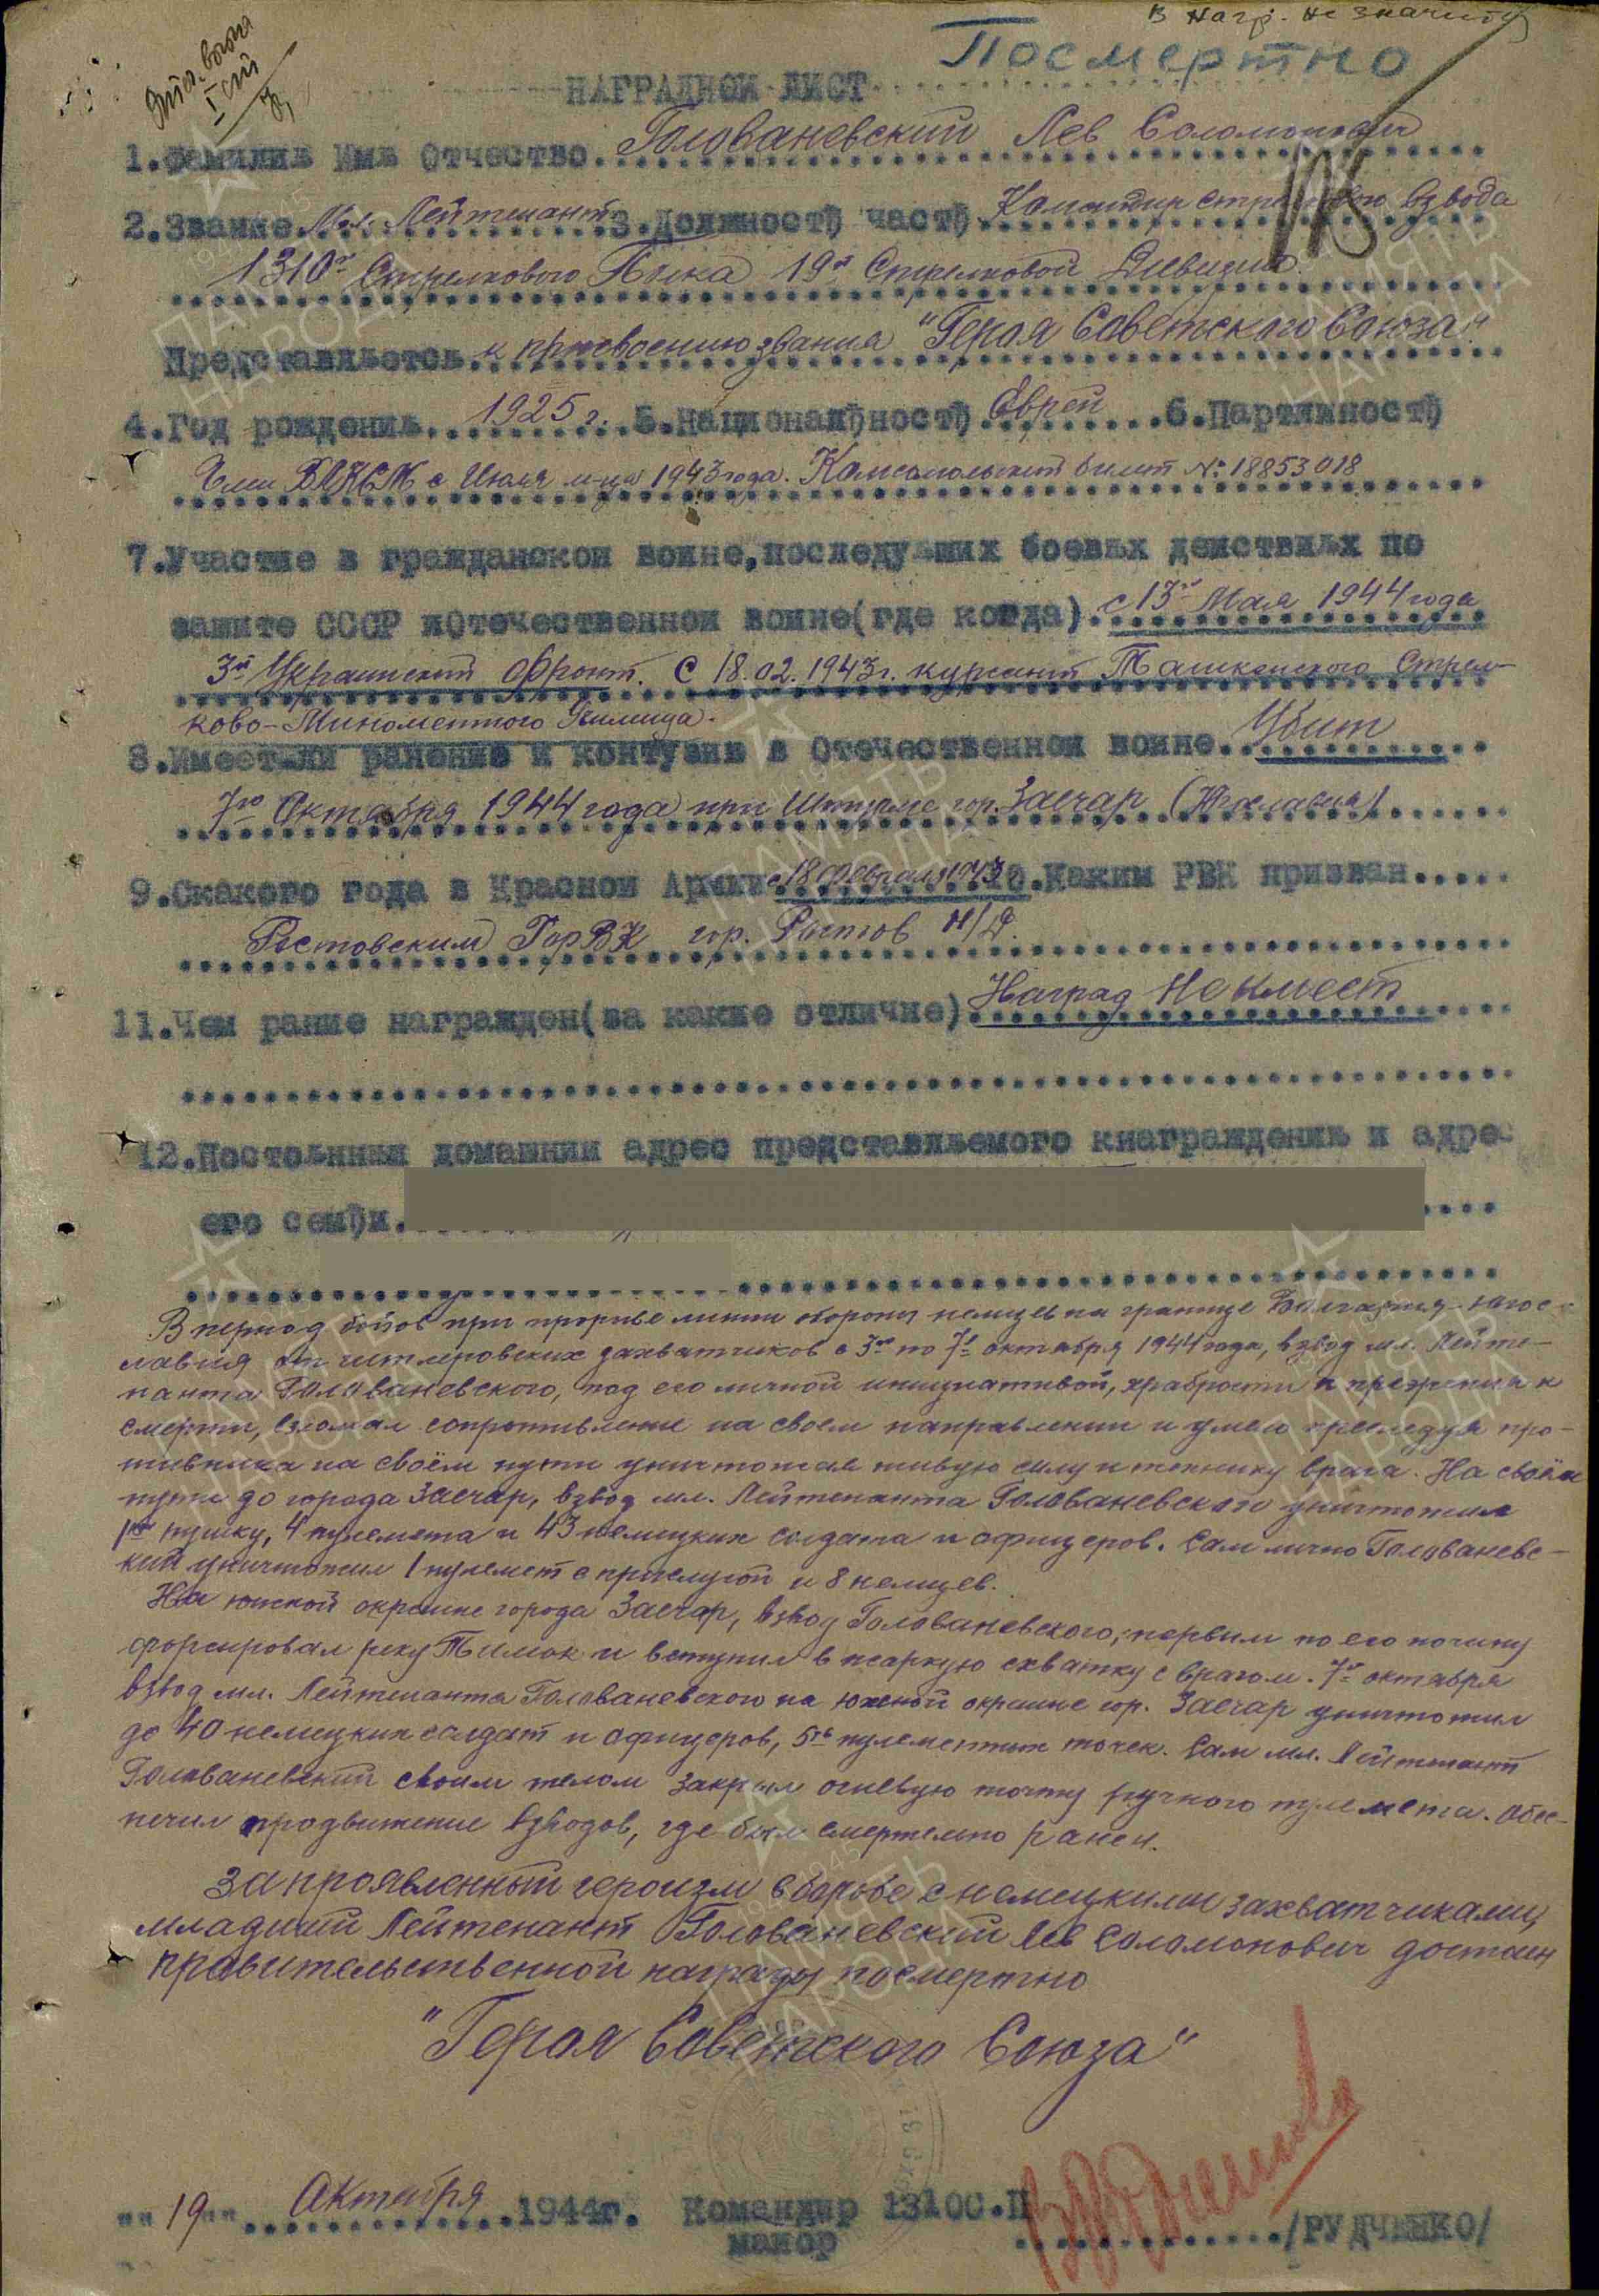 В нагр. не значится
Посмертно
НАГРАДНОЙ ЛИСТ
1.Фамилия Имя Отчество Голованевский Лев Соломонович
2.Звание Мл. Лейтенант 3.Должность часть Командир стрелкового взвода
1310го Стрелкового Полка 19й Стрелковой Дивизии.
Представляется к присвоению звания "Героя Советского Союза"
4.Год рождения 1925 г. 5.Национальность Еврей 6.Партийность
Член ВЛКСМ с Июля м-ца 1943 года. Комсомольский билет № 18853018
7.Участие в гражданской войне, последующих боевых действиях по
защите СССР и Отечественной войне (где когда) с 13го Мая 1944 года
3й Украинский фронт. С 18.02.1943г. курсант Ташкенского Стрел-
ково-Минометного Училища.
8.Имеет ли ранение и контузии в Отечественной войне. Убит
7го Октября 1944 года при Штурме гор. Заечар (Югославия)
9.Скакого года в Красной Армии с 18 февраля 1943 10.Каким РВК призван
Ростовским ГорВК гор. Ростов н/Д.
11.Чем ранее награжден (за какие отличие) Наград не имеет
12.Постоянный домашний адрес представляемого кнаграждению и адрес
его семьи.
В период боёв при прорыве линии обороны немцев на границе Болгария-Югос-
лавия от гитлеровских захватчиков с 3го по 7е октября 1944 года, взвод мл. Лейте-
нанта Голованевского, под его личной инициативой, храбрости и презрения к
смерти, взломал сопротивление на своем направлении и умело преследуя про-
тивника на своём пути уничтожая живую силу и технику врага. На своём
пути до города Заечар, взвод мл. Лейтенанта Голованевского уничтожил
1ну пушку, 4 пулемета и 43 немецких солдата и офицеров. Сам лично Голованевс-
кий уничтожил 1 пулемет с прислугой и 8 немцев.
На южной окраине города Заечар, взвод Голованевского, первым по его почину
форсировал реку Тимок и вступил в жаркую схватку с врагом. 7го октября
взвод мл. Лейтенанта Голованевского на южной окраине гор. Заечар уничтожил
до 40 немецких солдат и офицеров, 5ть пулеметных точек. Сам мл. Лейтенант
Голованевский своим телом закрыл огневую точку ручного пулемета. Обес-
печил продвижение взводов, где был смертельно ранен.
За проявленный героизм в борьбе с немецкими захватчиками,
младший Лейтенант Голованевский Лев Соломонович достоин
правительственной награды посмертно
"Героя Советского Союза"
"19" Октября 1944г. Командир 1310С.П
майор /РУДЧЕНКО/
ПАМЯТЬ НАРОДА